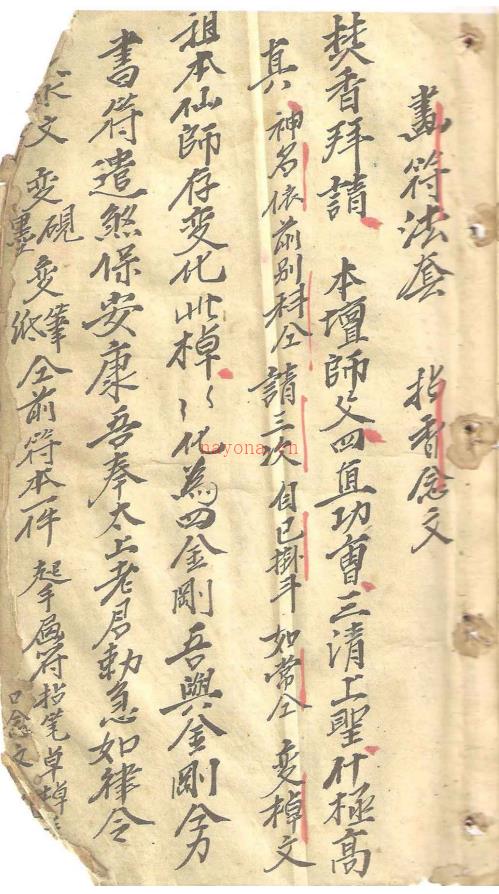 畫符法套　拈香念文
焚香拜請　本壇師父四直功曹三清上聖什極高
真　神名依前別科仝　請三次　自己掛斗　如常仝　変棹文
祖本仙師存变化此棹〻化為四金剛吾與金剛合力
書符遣煞保安康吾奉太上老君勅急如律令
文　变硯　变筆　墨　紙　仝前符本一件　起手画符拈笔草棹
口念文
nayona.cn